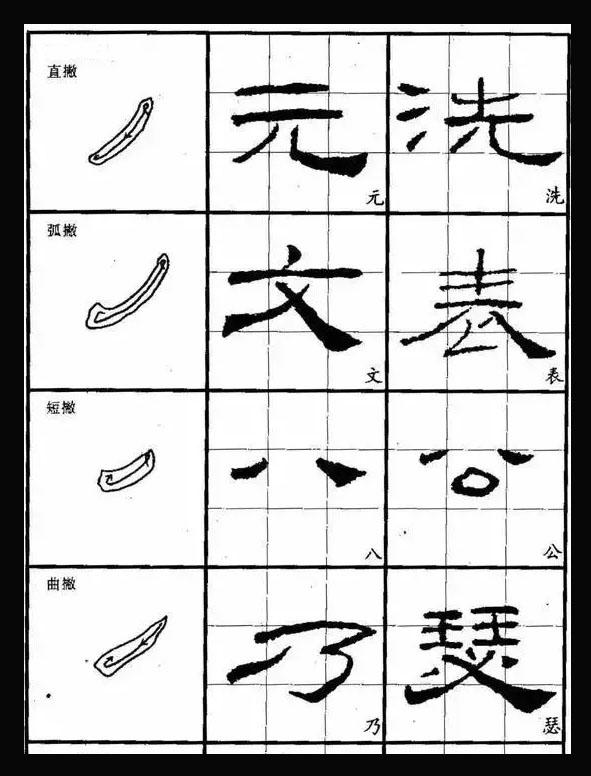 直撇
元 洗
元 洗
弧撇
文 表
文 表
短撇
八 公
八 公
曲撇
乃 瑟
乃 瑟